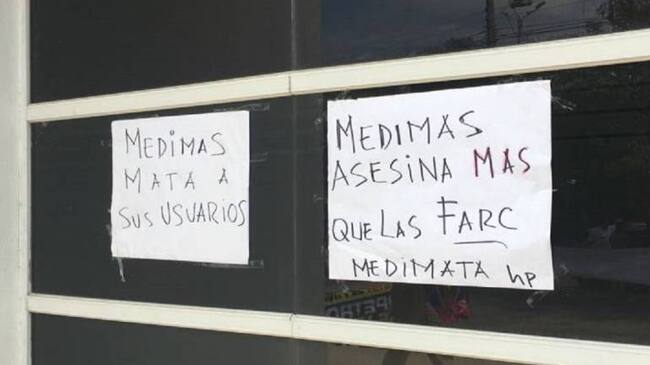 MEDIMAS
MATA A
SUS USUARIOS
MEDIMAS
ASESINA MAS
QUE LAS FARC
MEDIMATA hp